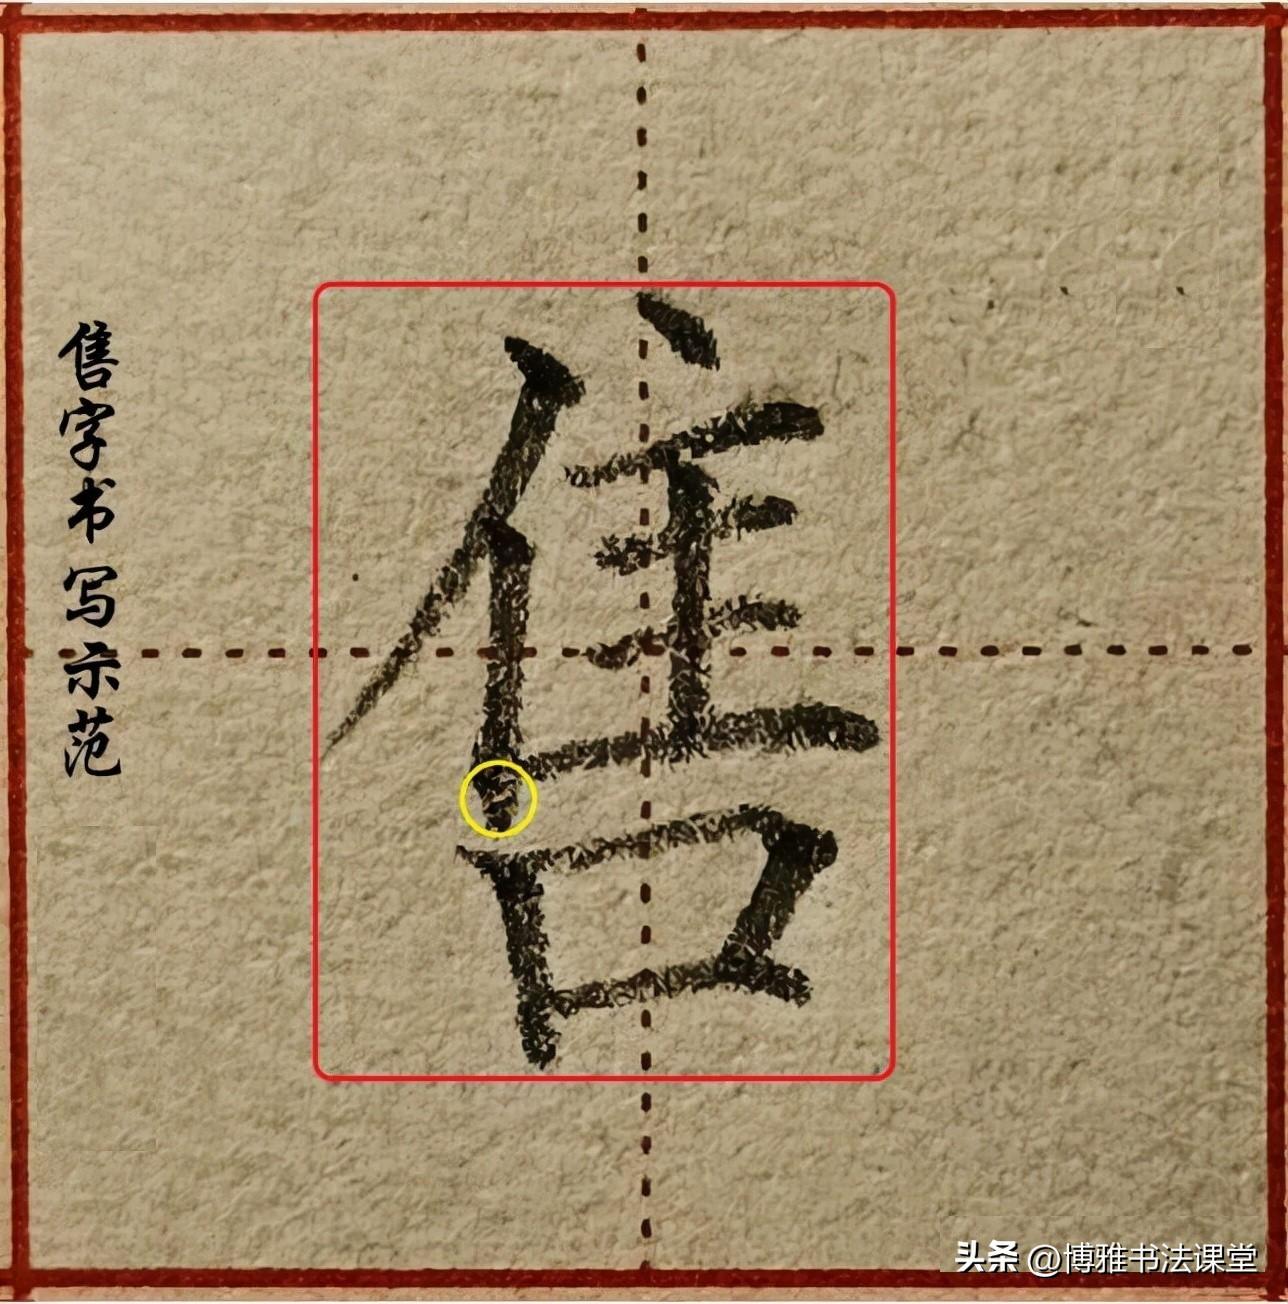 售字书写示范
售
头条 @博雅书法课堂